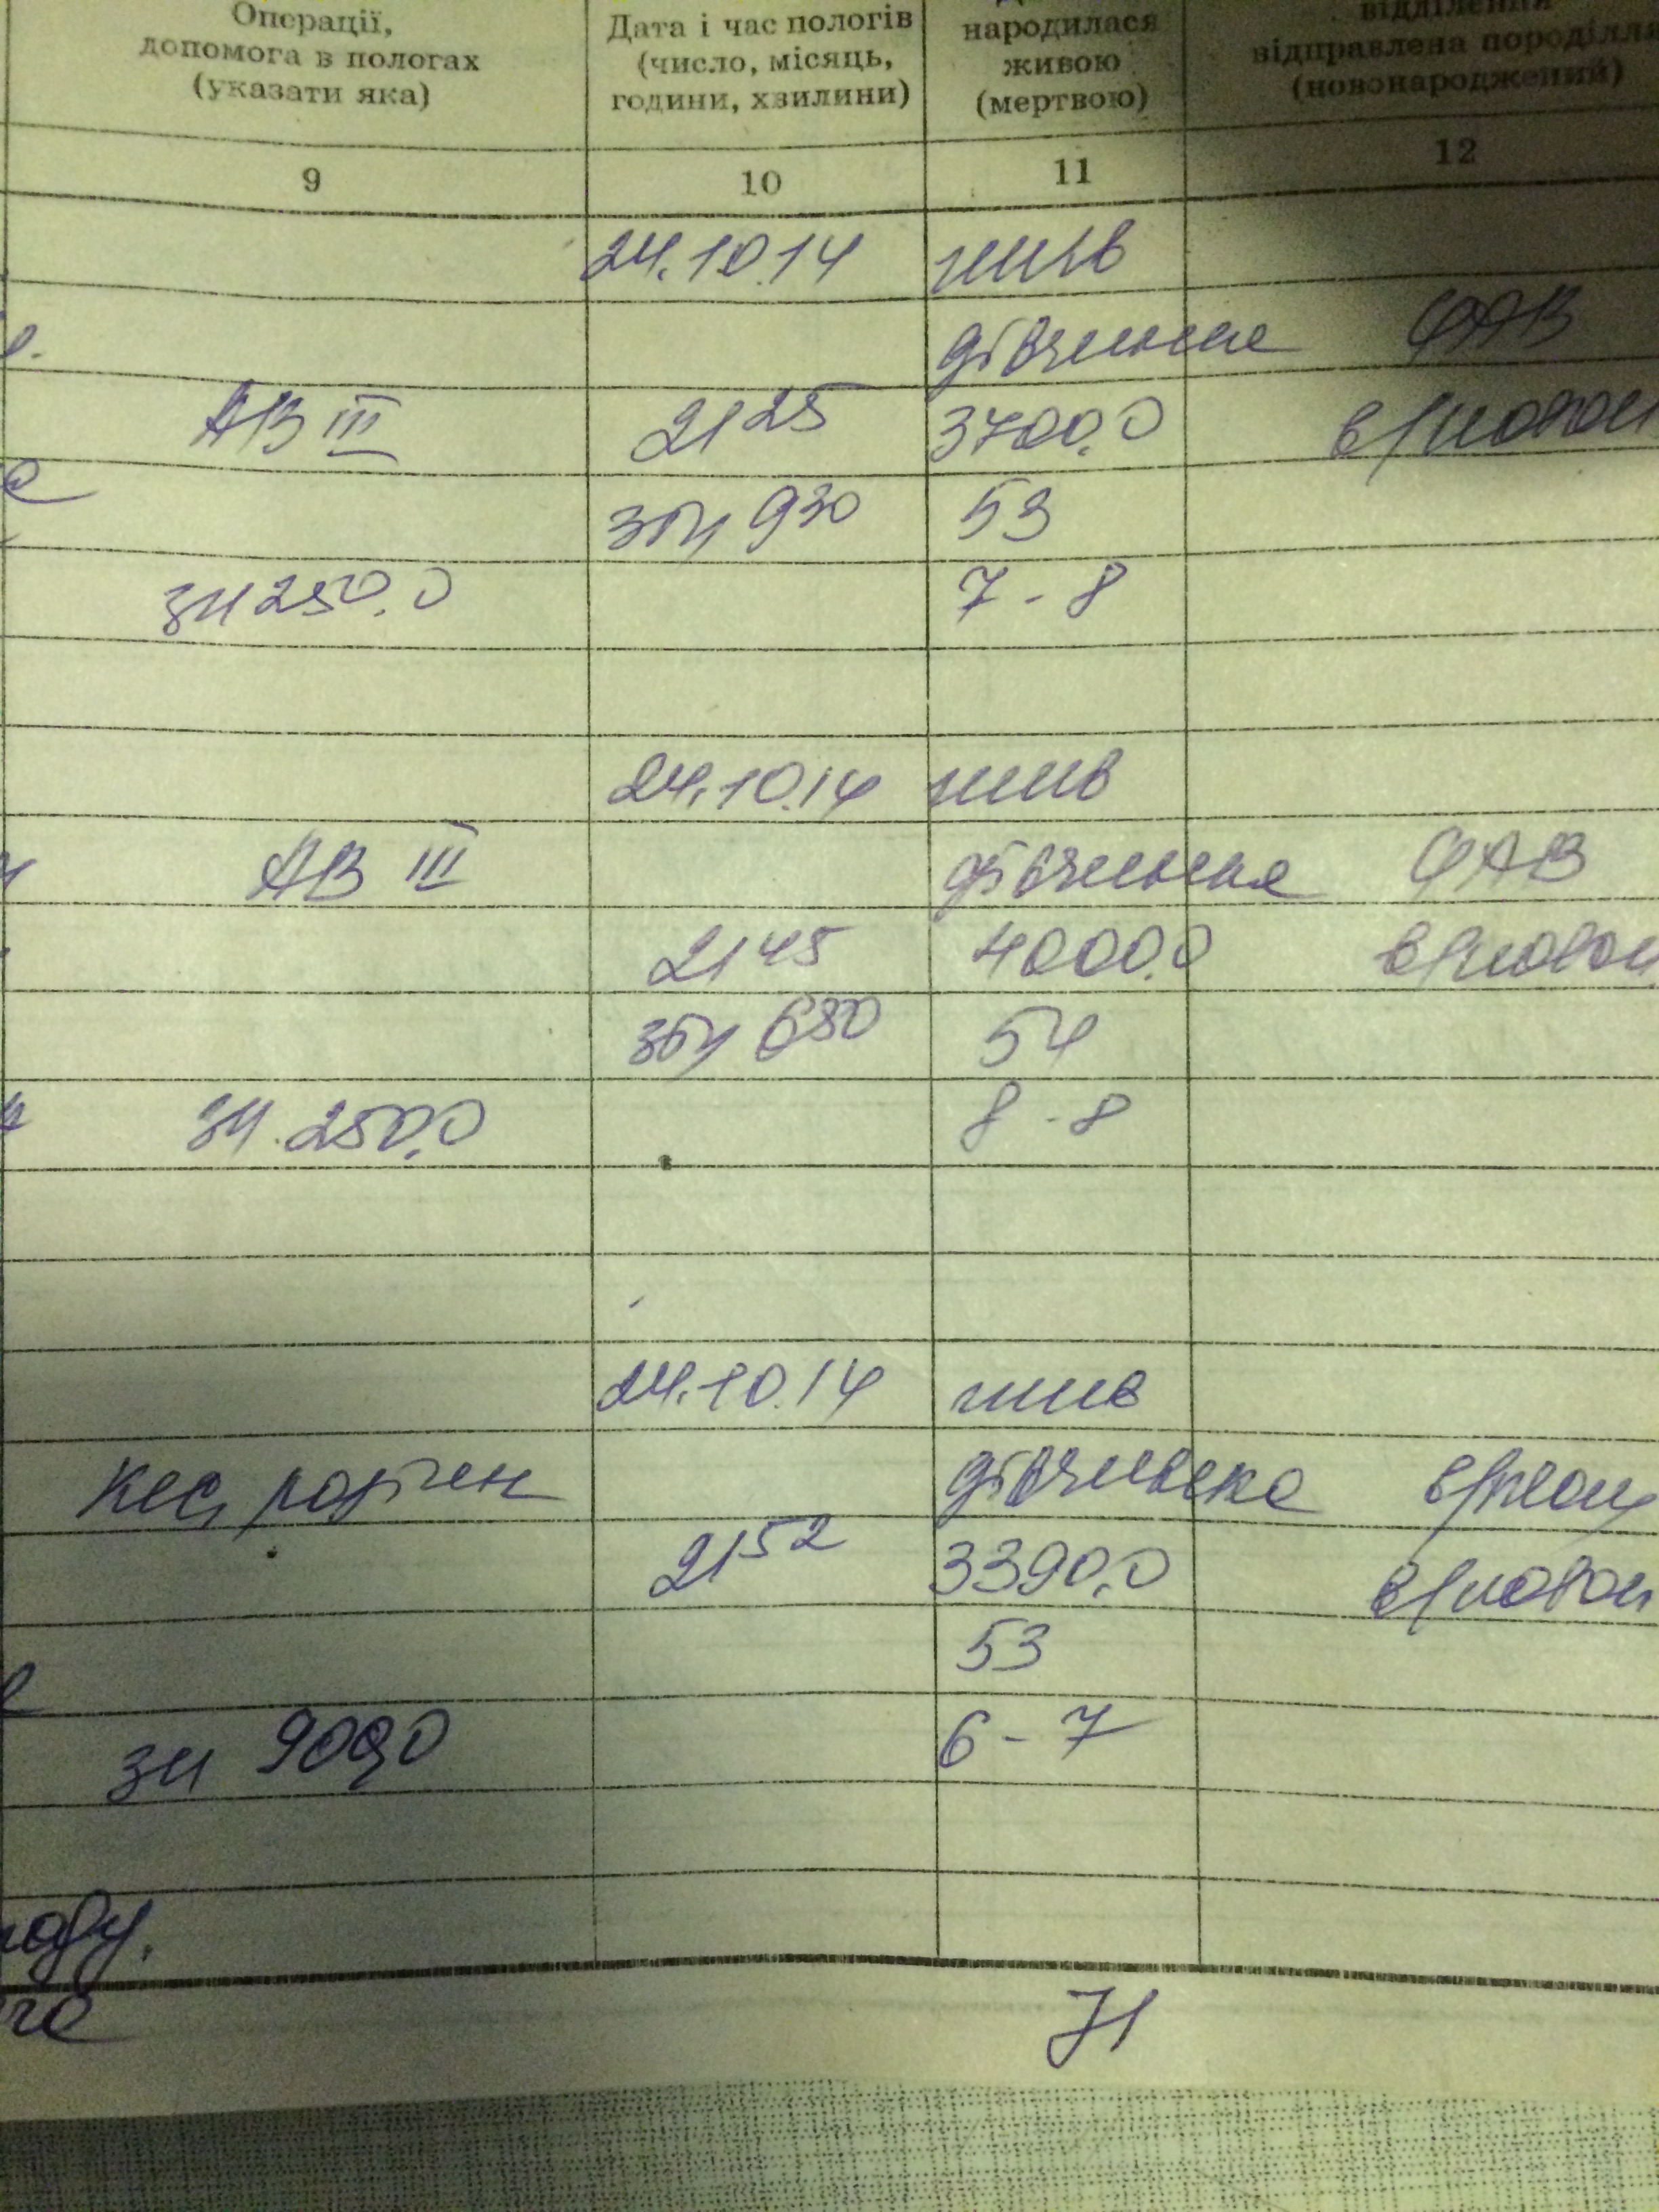 Операції,
допомога в пологах
(указати яка)
Дата і час пологів
(число, місяць,
години, хвилини)
народилася
живою
(мертвою)
відділення
відправлена породілля
(новонароджений)
9 10 11 12
24.10.14 жив
дівчинка ФАВ
АВ III 21 25 3700,0
930 53
зк 250,0 7 - 8
24.10.14 жив
АВ III дівчинка ФАВ
21 45 4000,0
680 54
зк 250,0 8 - 8
24.10.14 жив
кес. розтин дівчинка
21 52 3390,0
53
зк 900,0 6 - 7
71